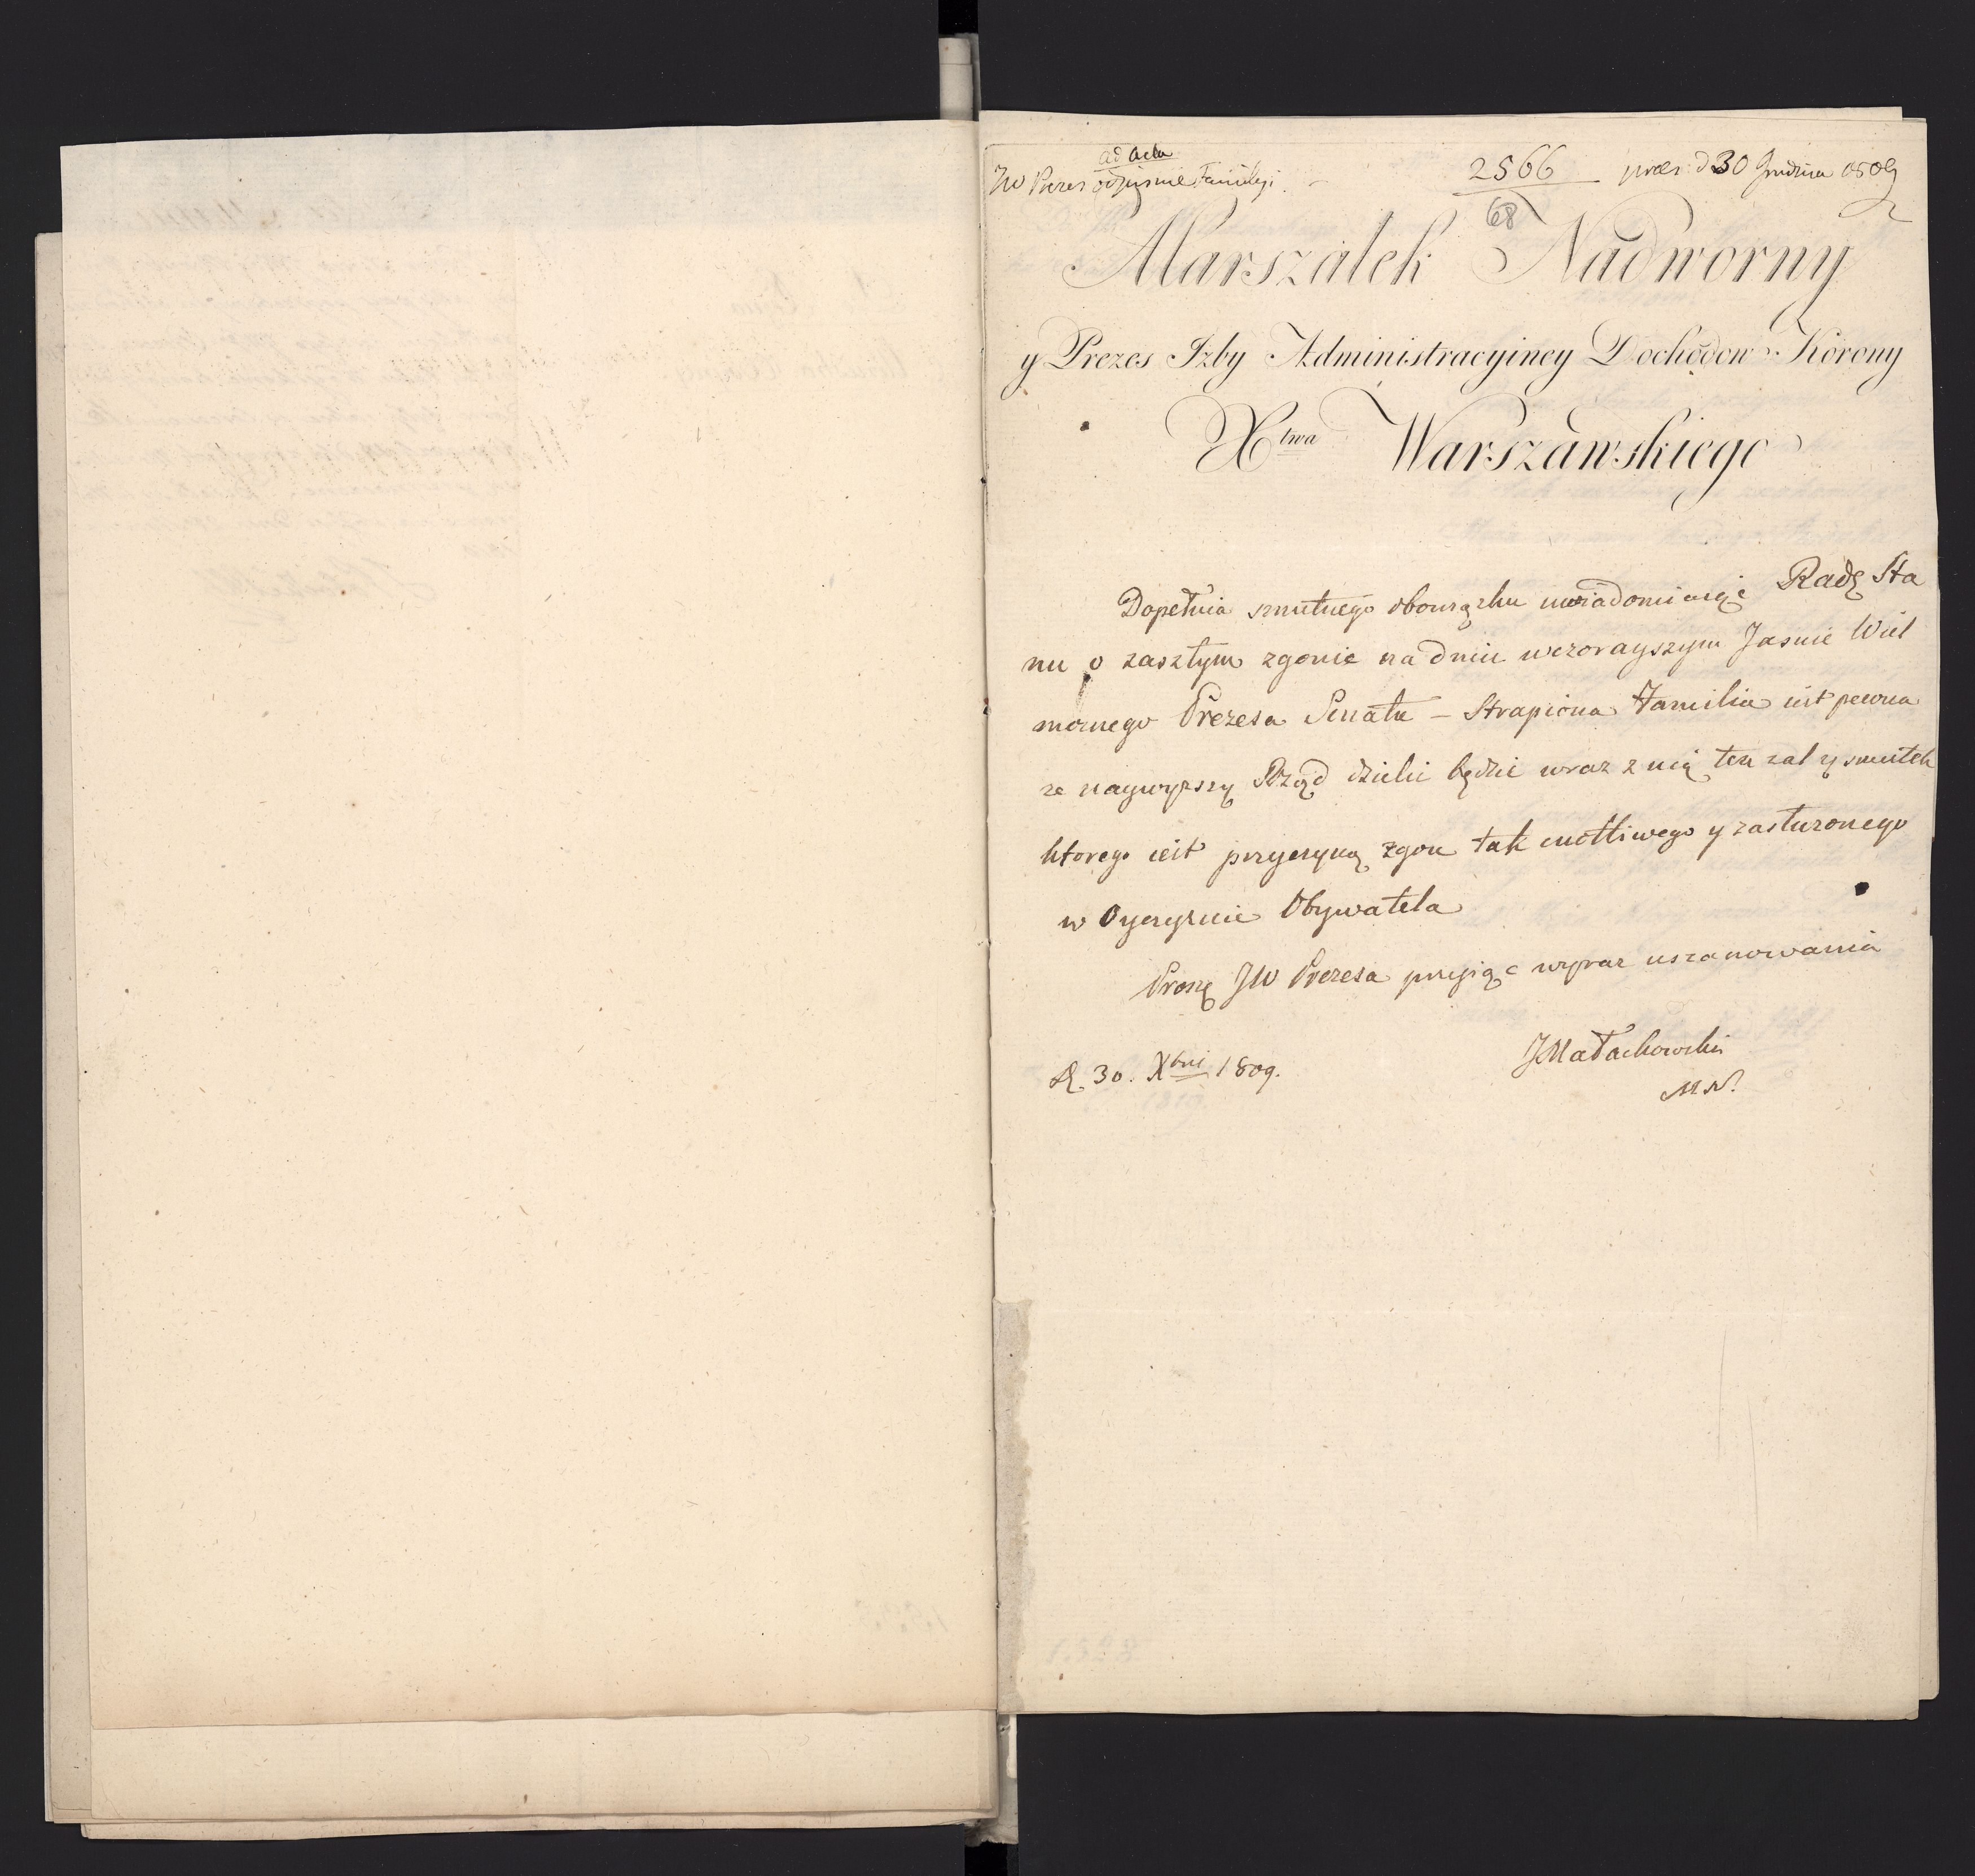 ad acta
JW Prezes odpisze Familiji.
2566 praes: d 30 Grudnia 1809
68
Marszałek Nadworny
y Prezes Izby Administracyiney Dochodow Korony
Xtwa Warszawskiego
Dopełnia smutnego obowiązku uwiadomiaiąc Radę Sta
nu o zaszłym zgonie na dniu wczorayszym Jasnie Wiel
możnego Prezesa Senatu – Strapiona Familia iest pewna
że naywyższy Rząd dzielić będzie wraz z nią ten żal y smutek
ktorego iest przyczyną zgon tak cnotliwego y zasłużonego
w Oyczyznie Obywatela
Proszę JW Prezesa przyiąć wyraz uszanowania
JMałachowski
MN.
d. 30. Xbris 1809.